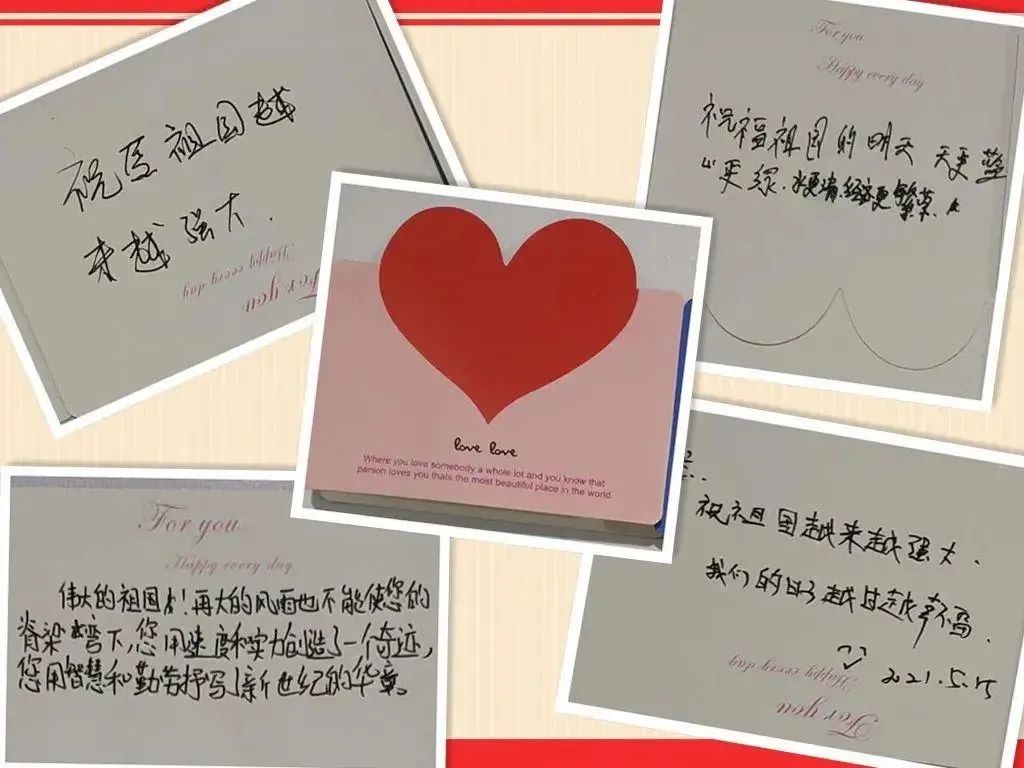 祝 祖国越
来越强大.
Happy every day
For you
For you
Happy every day
祝福祖国的明天 天更蓝
山更绿.水更清,经济更繁荣.
love love
Where you love somebody a whole lot and you know that
person loves you thats the most beautiful place in the world.
For you
Happy every day
伟大的祖国!再大的风雨也不能使您的
脊梁弯下,您用速度和实力创造了一个奇迹,
您用智慧和勤劳抒写了新世纪的华章。
祝祖国越来越强大.
我们的日子越过越幸福.
2021.5.15
Happy every day
For you